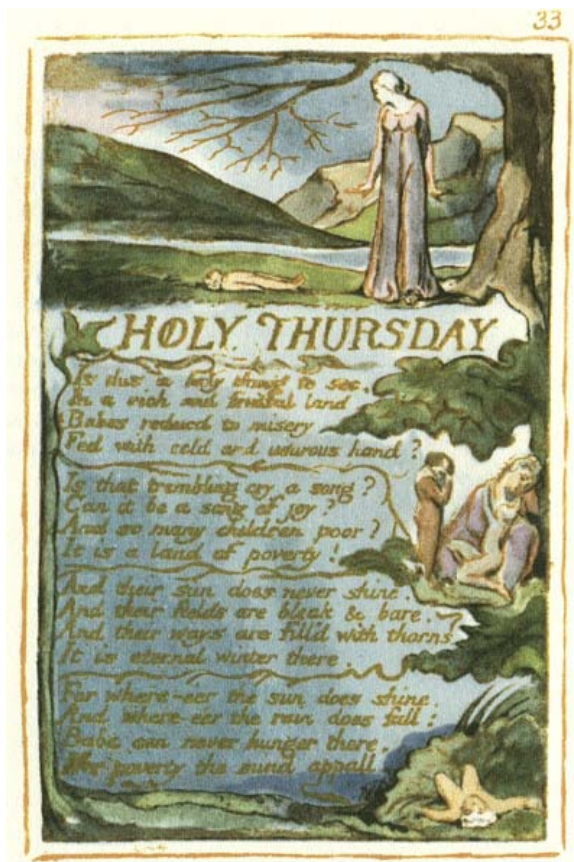 33
HOLY THURSDAY
Is this a holy thing to see.
In a rich and fruitful land
Babes reduced to misery
Fed with cold and usurous hand?
Is that trembling cry a song?
Can it be a song of joy?
And so many children poor?
It is a land of poverty!
And their sun does never shine.
And their fields are bleak & bare.
And their ways are fill'd with thorns
It is eternal winter there.
For where-eer the sun does shine.
And where-eer the rain does fall:
Babe can never hunger there.
Nor poverty the mind appall.